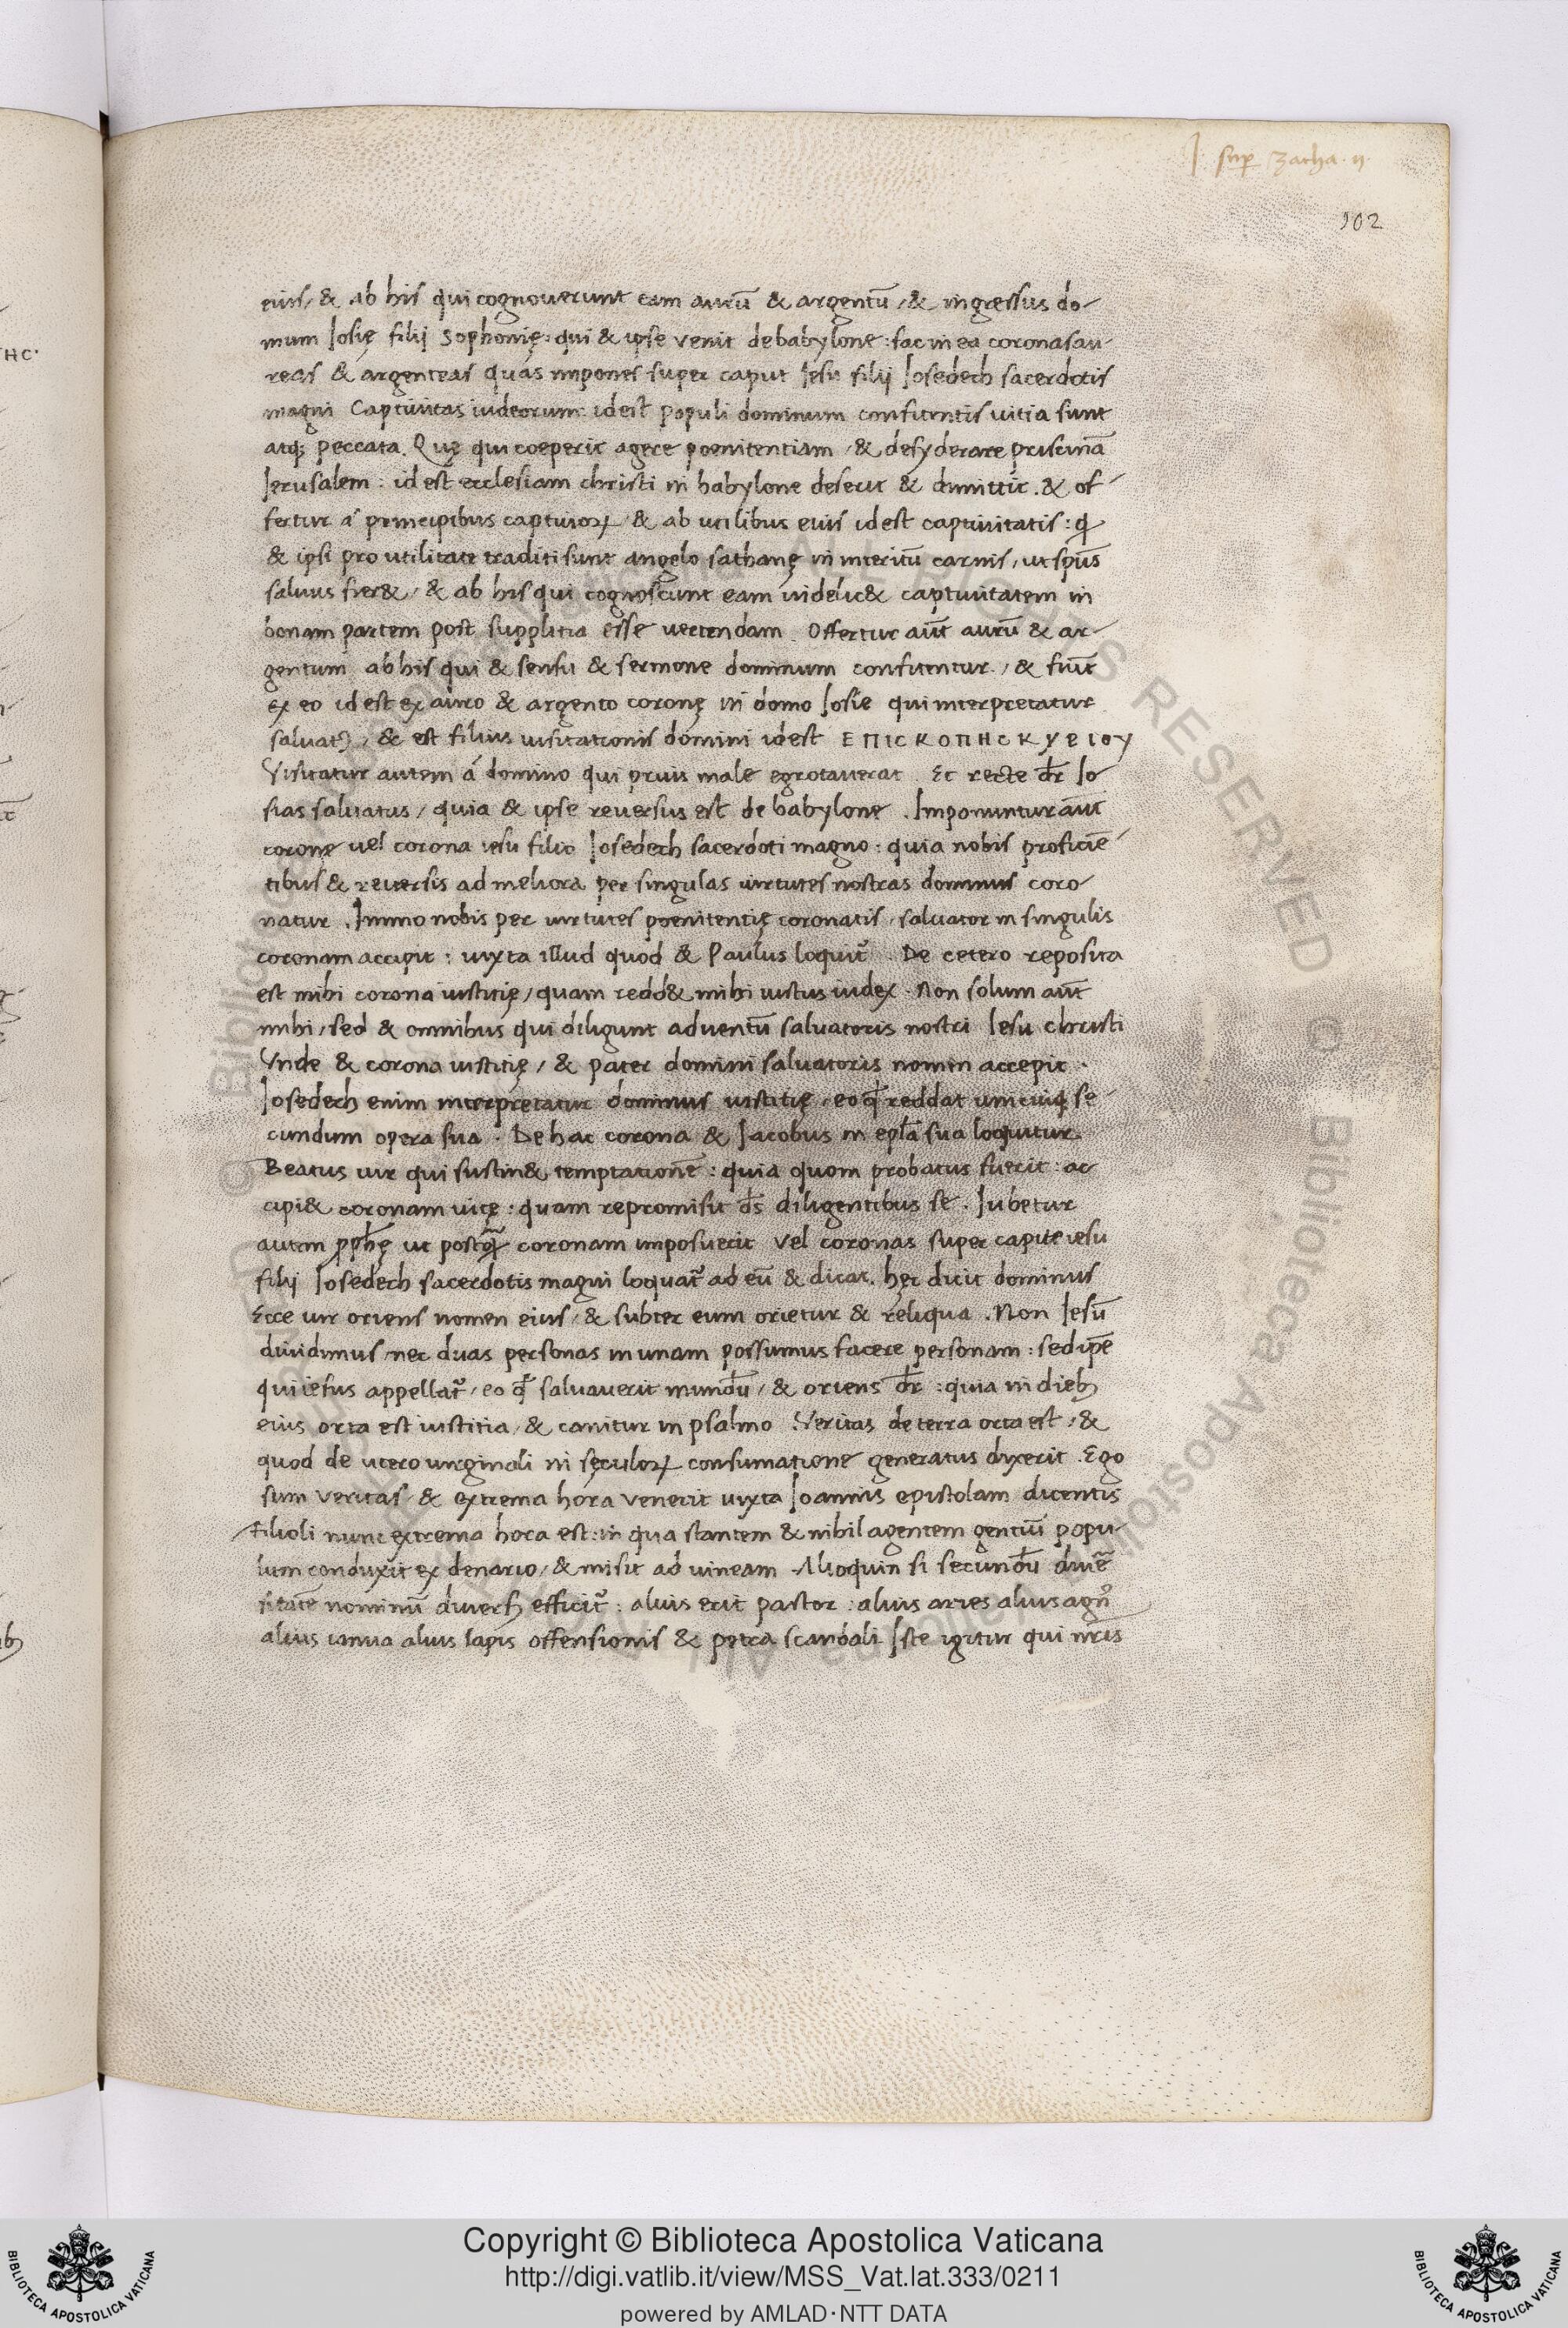 J. sup̱ zacha. ıȷ
102
eius, & ab his qui cognouerunt eam aurū & argentū, & ingressus do-
mum Iosię filij Sophonię: qui & ipse venit de babylone: fac in ea coronas au-
reas & argenteas quas impones super caput Iesu filij Iosedech sacerdotis
magni Captiuitas iudeorum: idest populi dominum confitentis uitia sunt
atq; peccata. Quę qui coeperit agere poenitentiam, & desyderare pristinā
Ierusalem: id est ecclesiam christi in babylone deserit & dimittit. & of-
fertur á principibus captiuoꝝ, & ab utilibus eius idest captiuitatis: q
& ipsi pro utilitate traditi sunt angelo sathanę in interitū carnis, ut sp̄us
saluus fier&, & ab his qui cognoscunt eam uidelic& captiuitatem in
bonam partem post supplitia esse uertendam. Offertur aūt aurū & ar-
gentum ab his qui & sensu & sermone dominum confitentur, & fiūt
ex eo id est ex auro & argento coronę in domo Iosie qui interpretatur
saluatꝰ, & est filius uisitationis domini idest ΕΠΙCΚΟΠΗC ΚΥΡΙΟΥ
Visitatur autem á domino qui prius male egrotauerat. Et recte dr̄ Io-
sias saluatus, quia & ipse reuersus est de babylone. Imponuntur aūt
coronę uel corona iesu filio Iosedech sacerdoti magno: quia nobis proficiē-
tibus & reuersis ad meliora per singulas uirtutes nostras dominus coro-
natur. Immo nobis per uirtutes poenitentię coronatis, saluator in singulis
coronam accipit: iuxta illud quod & Paulus loquit᷑. De cetero reposita
est mihi corona iustitię, quam redd& mihi iustus iudex. Non solum aūt
mihi, sed & omnibus qui diligunt aduentū saluatoris nostri Iesu christi
Vnde & corona iustitię, & pater domini saluatoris nomen accepit.
Iosedech enim interpretatur dominus iustitię, eo qd̄ reddat unicuiq; se-
cundum opera sua. De hac corona & Iacobus in epl̄a sua loquitur.
Beatus uir qui sustin& temptationē: quia quom probatus fuerit: ac
cipi& coronam uitę: quam repromisit ds̄ diligentibus se. Iubetur
autem ꝓph̄ę ut postq̄ꝫ coronam imposuerit vel coronas super capite iesu
filij Iosedech sacerdotis magni loquat᷑ ad eū & dicat. hęc dicit dominus
Ecce uir oriens nomen eius, & subter eum orietur & reliqua. Non Iesū
diuidimus nec duas personas in unam possumus facere personam: sed ip̄e
qui iesus appellat᷑, eo qd̄ saluauerit mundū, & oriens dr̄: quia in dieb;
eius orta est iustitia, & canitur in psalmo. Veritas de terra orta est, &
quod de utero uirginali in sęculoꝝ consumatione generatus dixerit. Ego
sum veritas, & extrema hora venerit iuxta Ioannis epistolam dicentis
Filioli nunc extrema hora est: in qua stantem & nihil agentem gentiū popu-
lum conduxit ex denario, & misit ad uineam. Alioquin si secundū diuer̄
sitatē nominū diuersꝰ efficit᷑: alius erit pastor: alius aries alius agnꝰ
alius ianua alius lapis offensionis & petra scandali. Iste igitur qui nr̄is
Copyright © Biblioteca Apostolica Vaticana
http://digi.vatlib.it/view/MSS_Vat.lat.333/0211
powered by AMLAD·NTT DATA